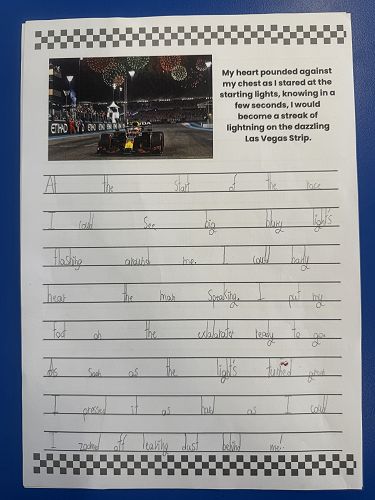 My heart pounded against
my chest as I stared at the
starting lights, knowing in a
few seconds, I would
become a streak of
lightning on the dazzling
Las Vegas Strip.
ETIHAD
At the start of the race
I could see big blury light's
flashing around me. I could barly
hear the man speaking. I put my
foot on the ready to go
As soon as the light's turned green
I pressed it as hard as I could
I zoomed off leaving dust behind me!